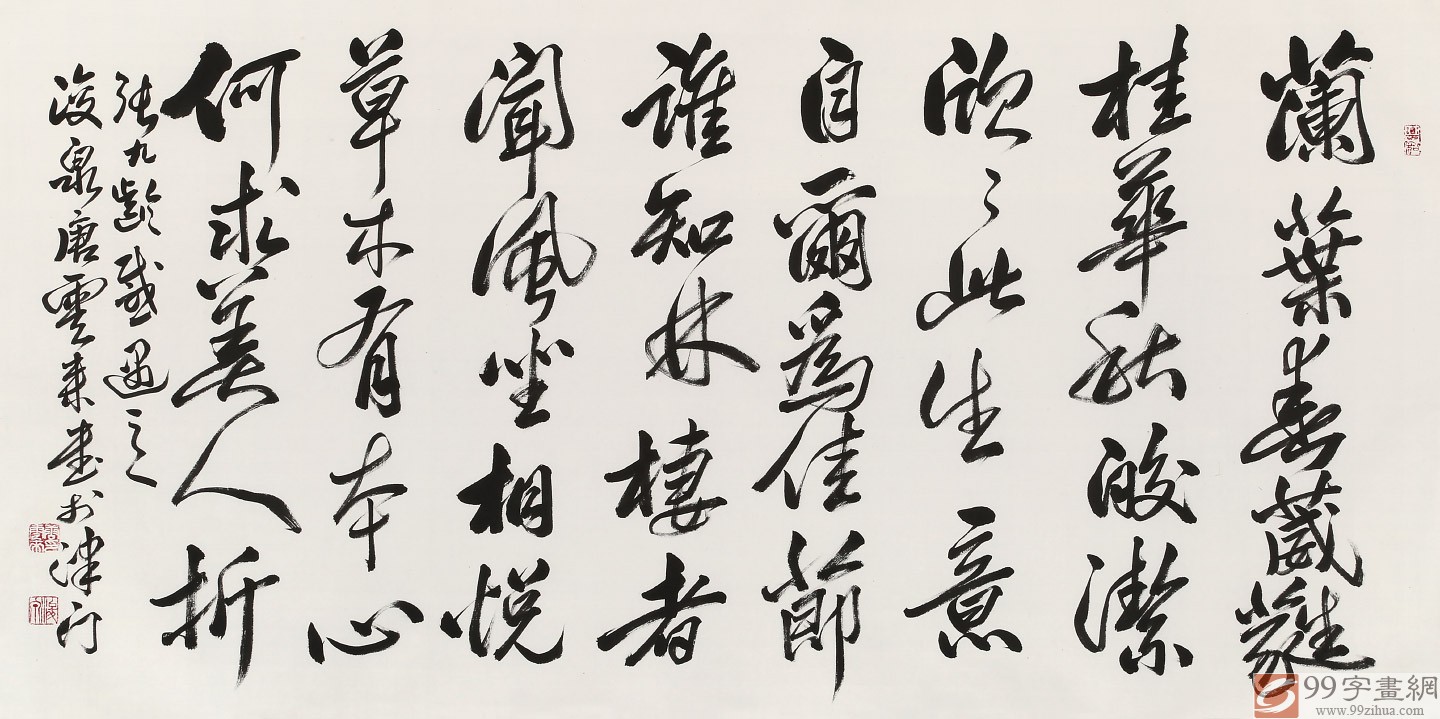 蘭葉春葳蕤
桂華秋皎潔
欣々此生意
自爾為佳節
誰知林棲者
聞風坐相悅
草木有本心
何求美人折
張九齡感遇之一
浚泉唐雲來書於津門
99字畫網
www.99zihua.com